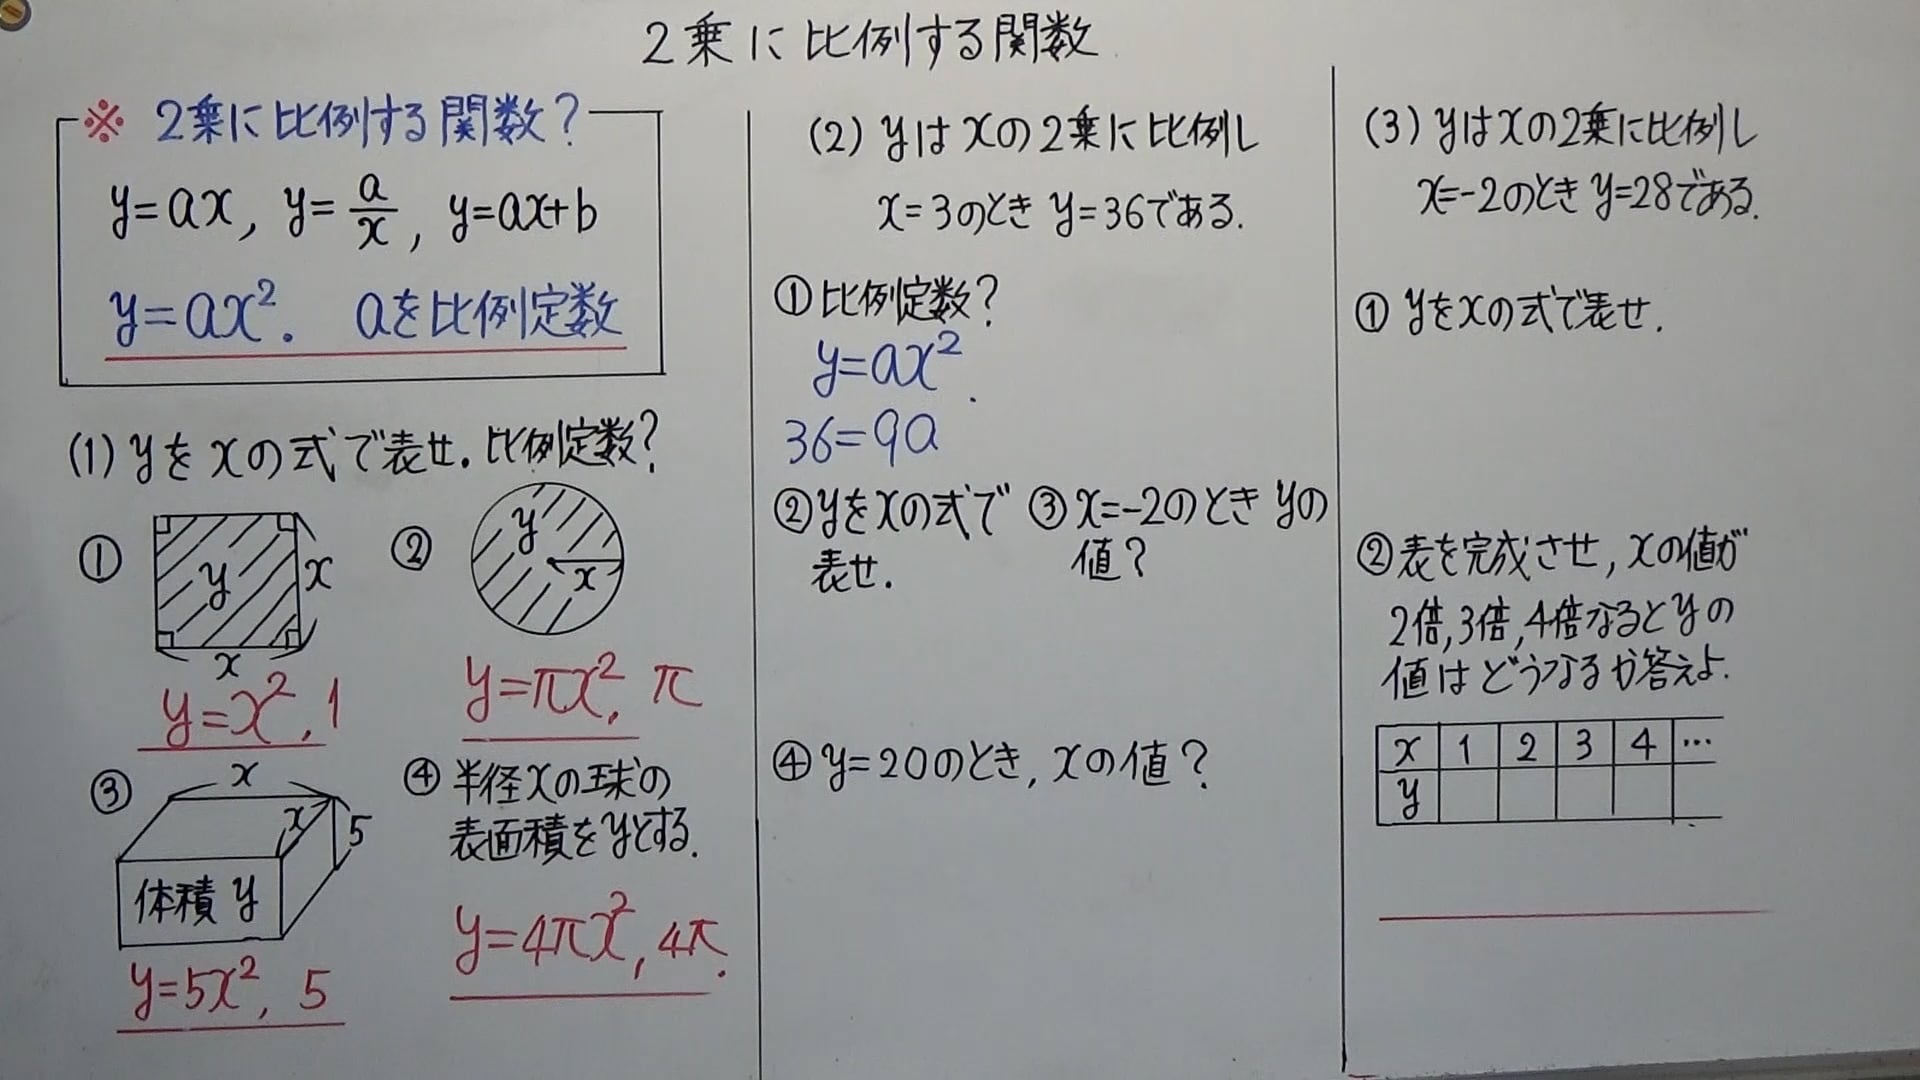 2乗に比例する関数
※ 2乗に比例する関数?
y=ax, y=a/x, y=ax+b
y=ax². aを比例定数
(1) yをxの式で表せ. 比例定数?
①
y
x
x
y=x², 1
②
y
x
y=πx², π
③
x
x
5
体積 y
y=5x², 5
④ 半径xの球の
表面積をyとする.
y=4πx², 4π.
(2) yはxの2乗に比例し
x=3のとき y=36である.
① 比例定数?
y=ax².
36=9a
② yをxの式で
表せ.
③ x=-2のとき yの
値?
④ y=20のとき, xの値?
(3) yはxの2乗に比例し
x=-2のとき y=28である.
① yをxの式で表せ.
② 表を完成させ, xの値が
2倍,3倍,4倍なるとyの
値はどうなるか答えよ.
x 1 2 3 4 …
y